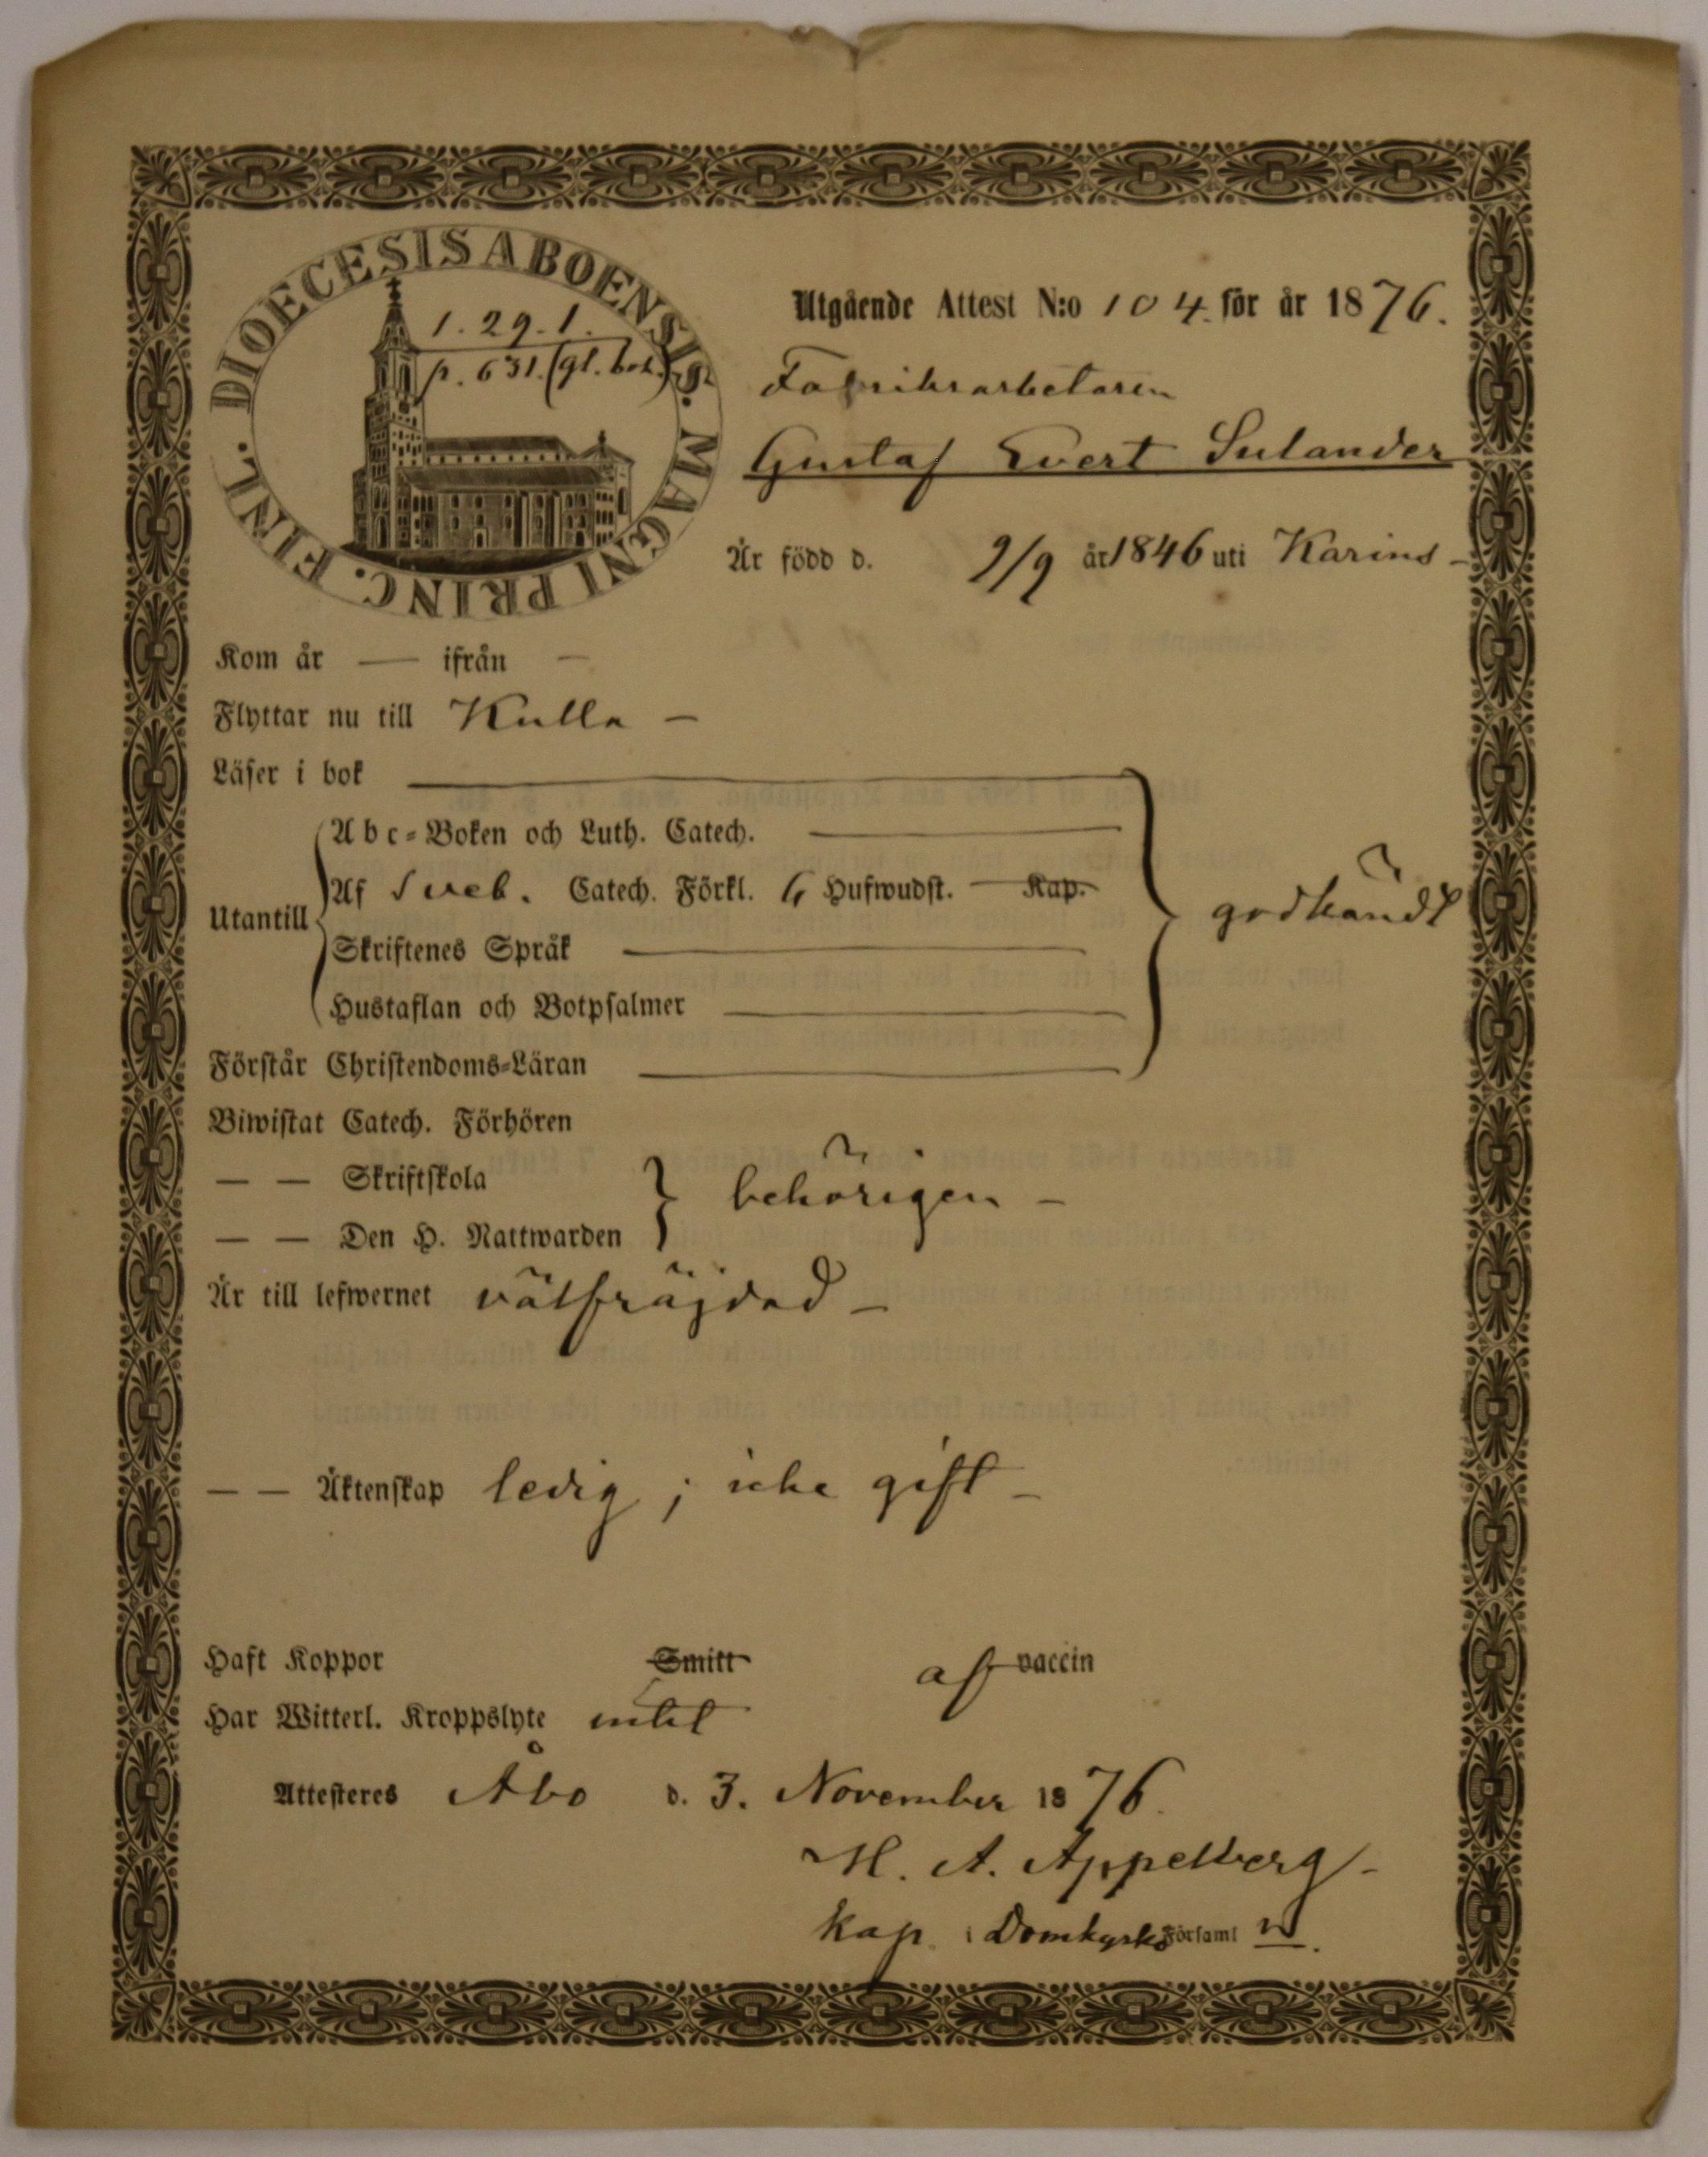 DIOECESIS ABOENSIS. MAGNI PRINC. FINL.
1. 29. 1.
p. 631. (gl. bok.)
Utgående Attest N:o 104. för år 1876.
Fabriksarbetaren
Gustaf Evert Sulander
Är född d. 9/9 år 1846 uti Karins -
Kom år — ifrån —
Flyttar nu till Kulla —
Läser i bok
Abc-Boken och Luth. Catech.
Utantill
Af Sveb. Catech. Förkl. 6 Hufwudst. Kap.
godkändt
Skriftenes Språk
Hustaflan och Botpsalmer
Förstår Christendoms-Läran
Biwistat Catech. Förhören
— — Skriftskola
behörigen —
— — Den H. Nattwarden
Är till lefwernet välfräjdad —
— — Äktenskap ledig; icke gift —
Haft Koppor Smitt af vaccin
Har Witterl. Kroppslyte intet
Attesteres Åbo d. 3. November 1876.
A. Appelberg
Kap. i Domkyrko Församl